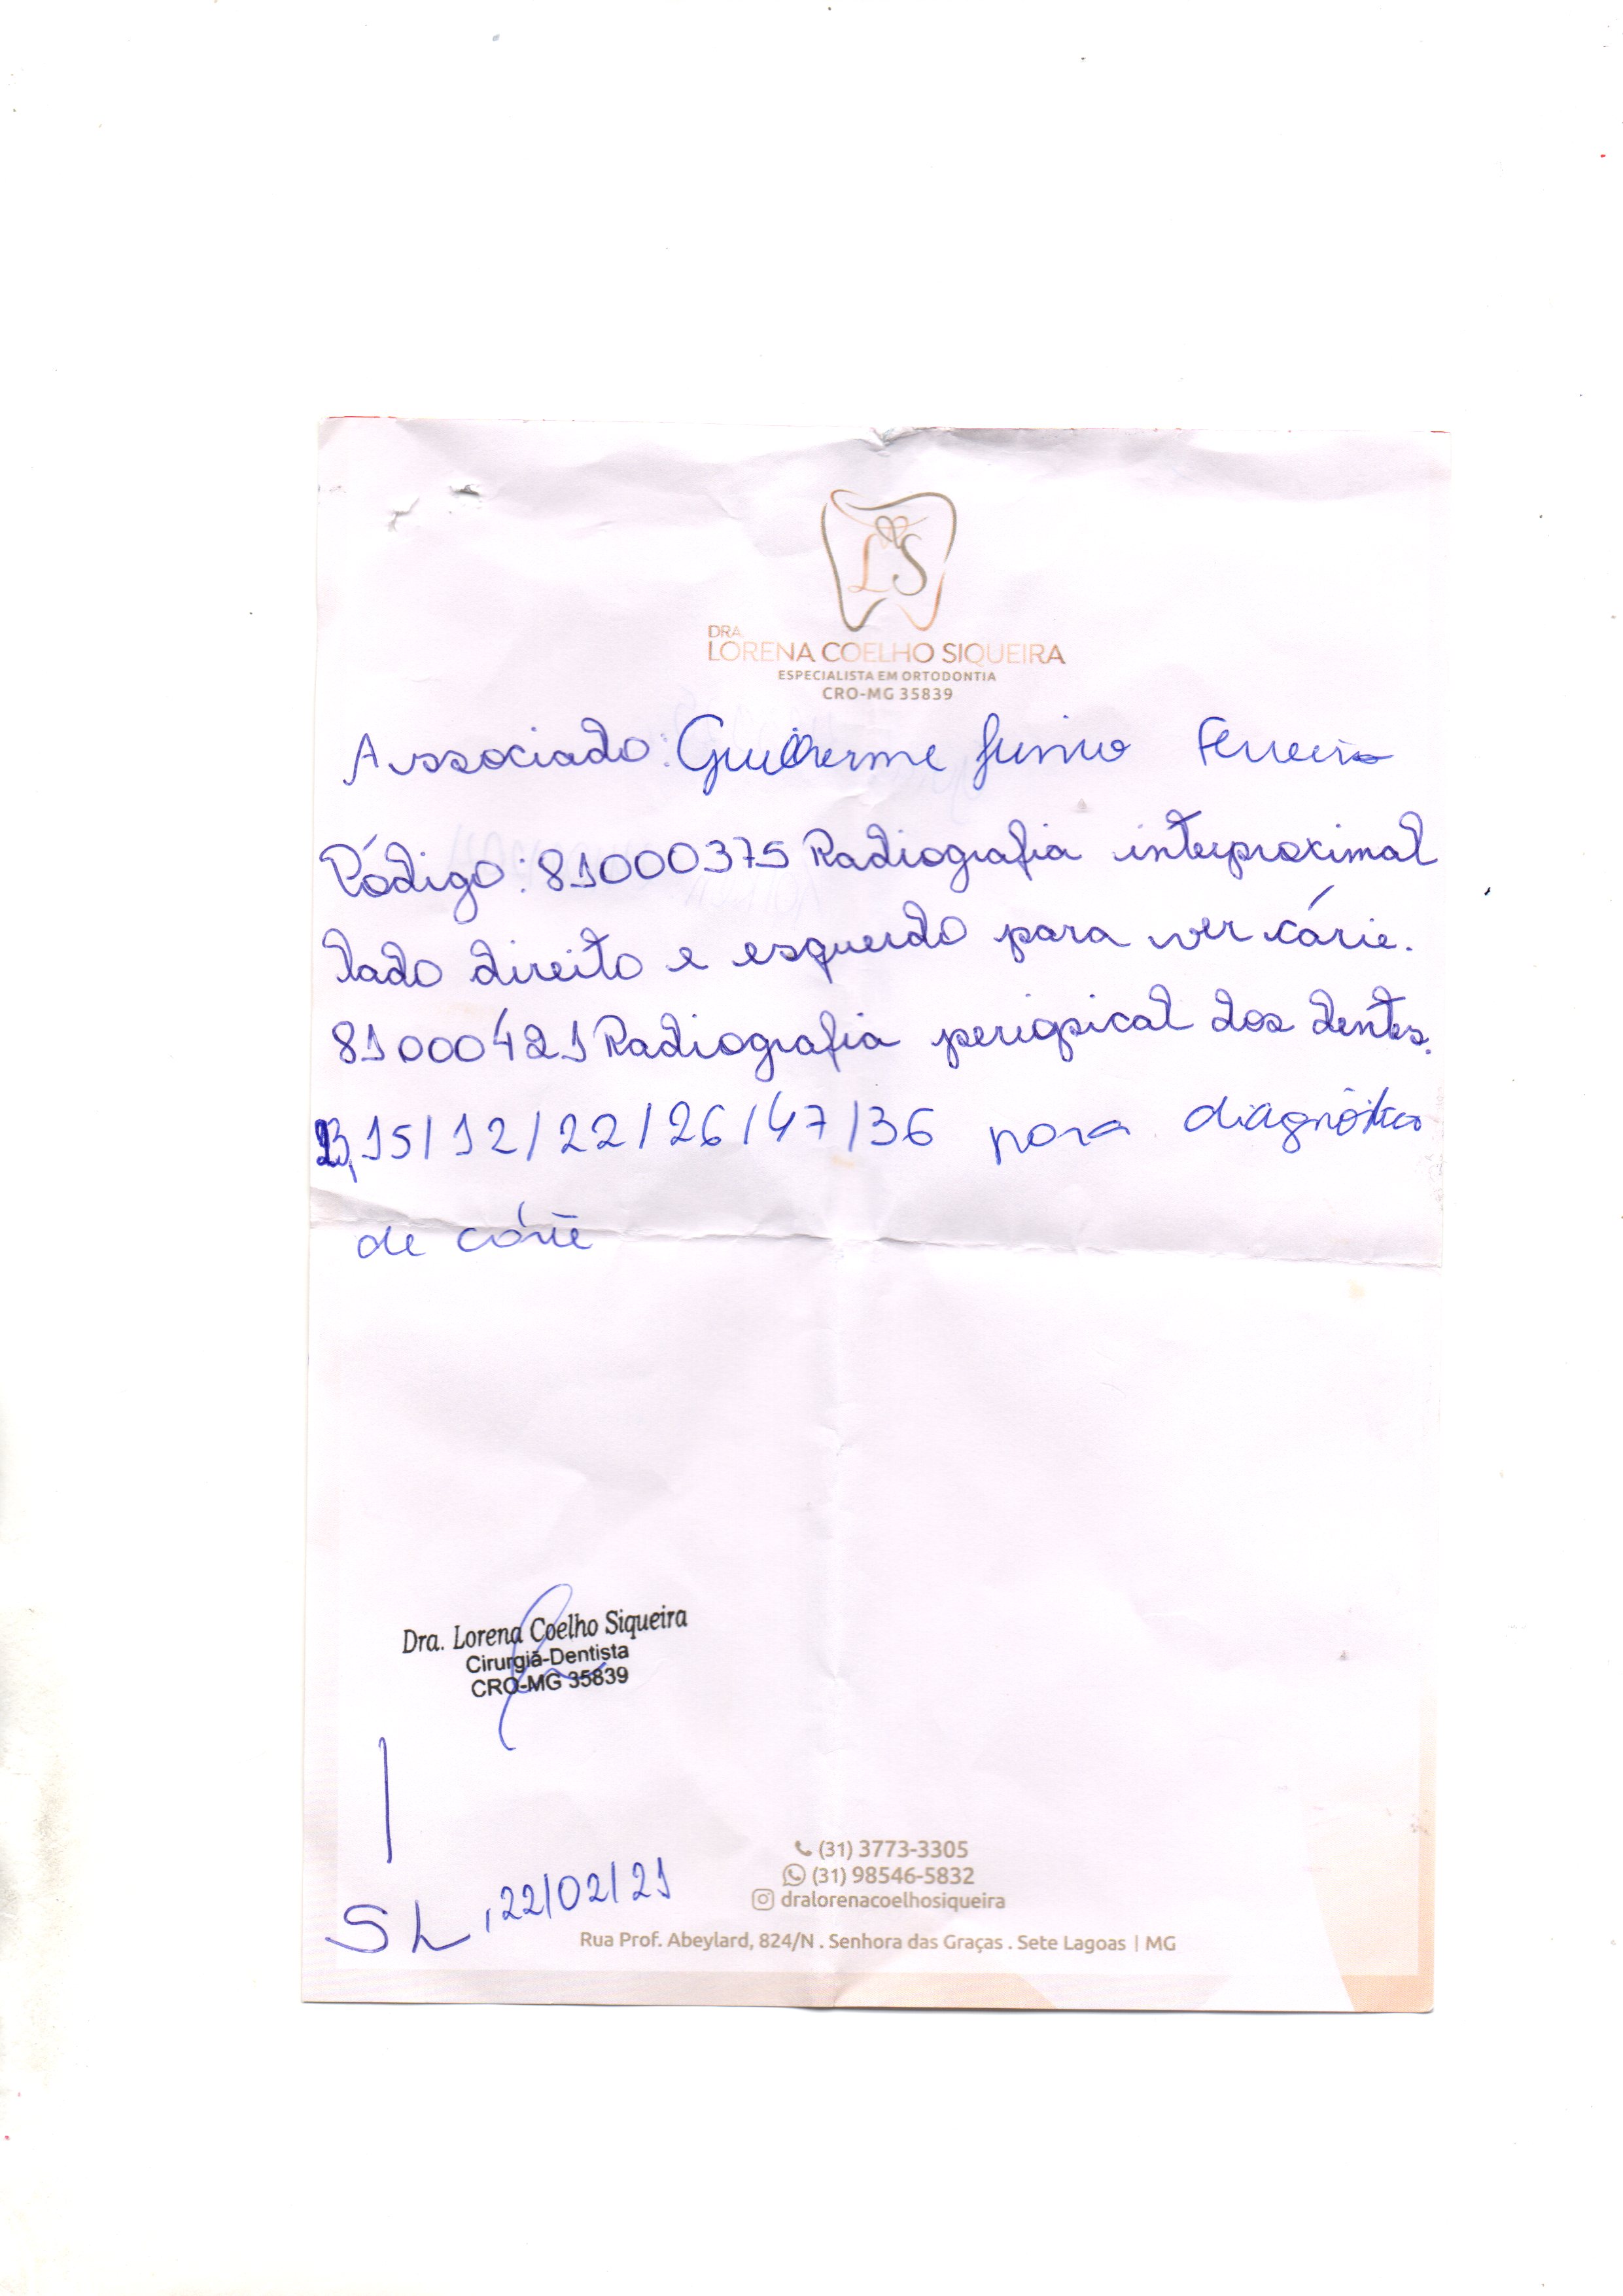 LS
DRA.
LORENA COELHO SIQUEIRA
ESPECIALISTA EM ORTODONTIA
CRO-MG 35839
Associado: Guilherme Junio Ferreira
Código: 81000375 Radiografia interproximal
lado direito e esquerdo para ver cárie.
81000421 Radiografia periapical dos dentes.
15/12/22/26/47/36 para diagnóstico
de cárie
Dra. Lorena Coelho Siqueira
Cirurgiã-Dentista
CRO-MG 35839
(31) 3773-3305
(31) 98546-5832
dralorenacoelhosiqueira
SL, 22/02/21
Rua Prof. Abeylard, 824/N . Senhora das Graças . Sete Lagoas | MG